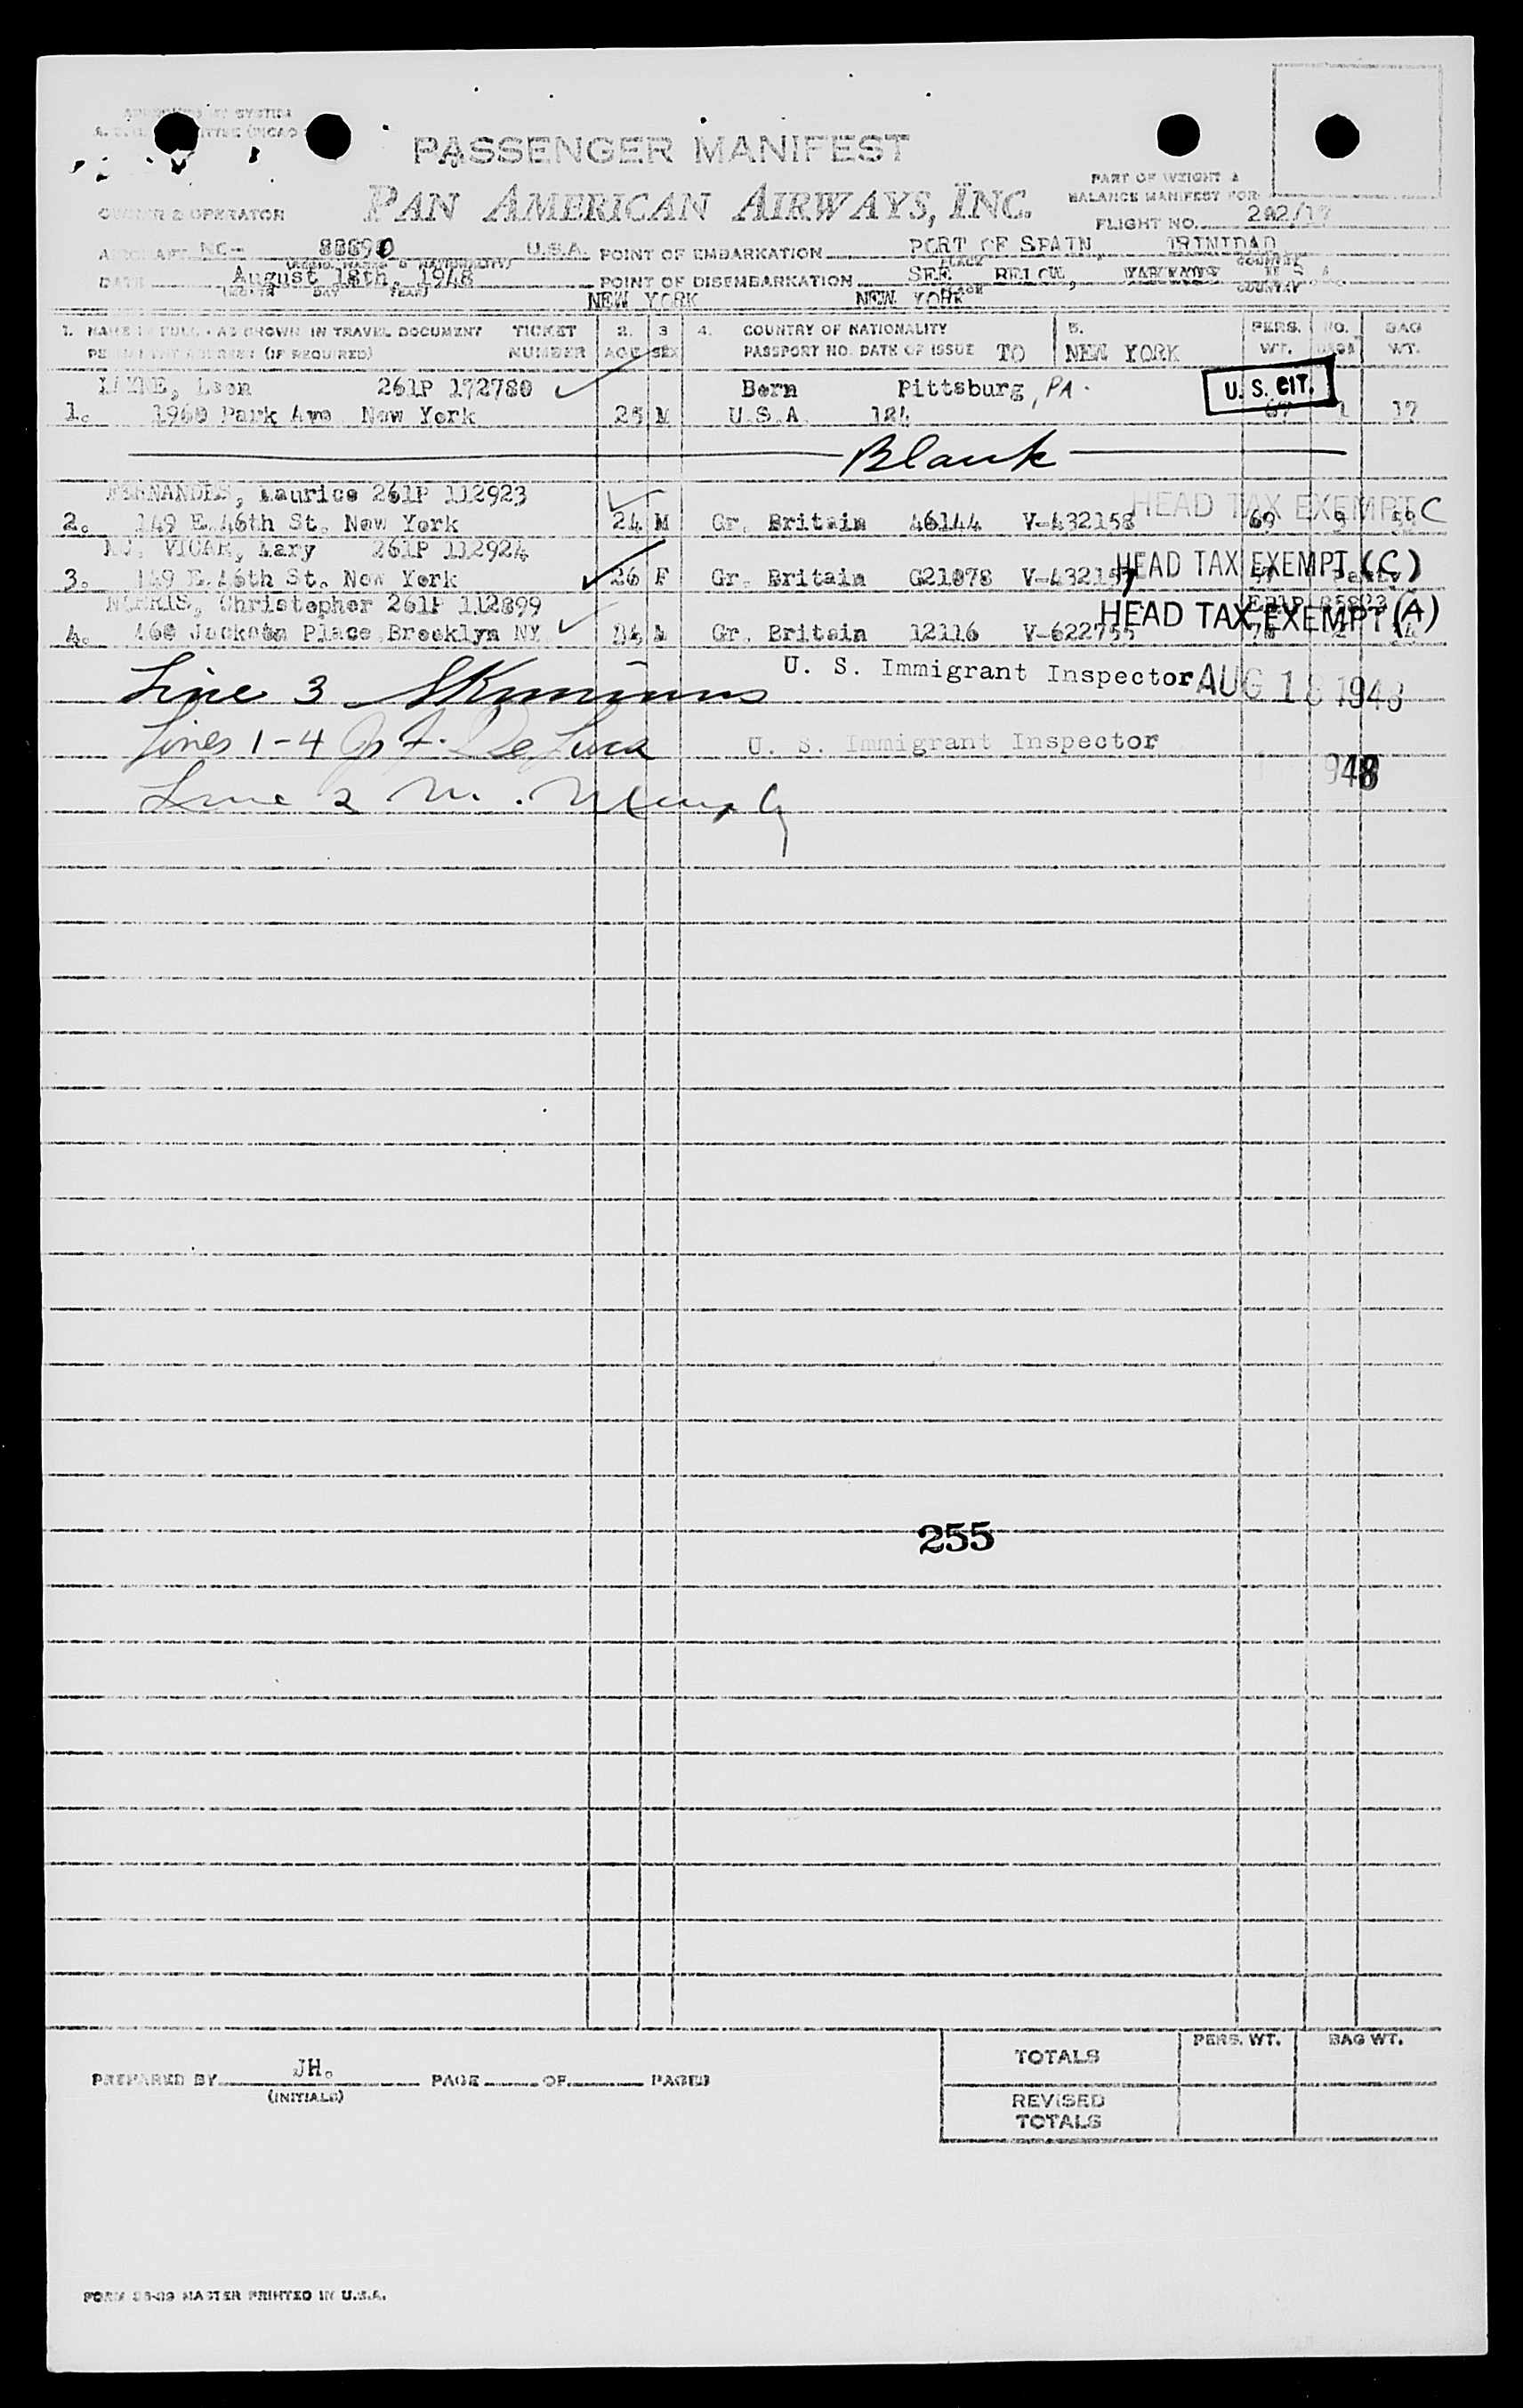 PASSENGER MANIFEST
PAN AMERICAN AIRWAYS, INC.
PART OF WEIGHT &
BALANCE MANIFEST FOR
OWNER & OPERATOR
FLIGHT NO. 202/17
AIRCRAFT NC- 88890 U.S.A. POINT OF EMBARKATION PORT OF SPAIN, TRINIDAD
DATE August 18th, 1948 POINT OF DISEMBARKATION SEE BELOW, U S A
NEW YORK NEW YORK
1. NAME IN FULL - AS SHOWN IN TRAVEL DOCUMENT TICKET 2. 3 4. COUNTRY OF NATIONALITY 5. PERS. NO. BAG
PERMANENT ADDRESS (IF REQUIRED) NUMBER AGE SEX PASSPORT NO. DATE OF ISSUE TO NEW YORK WT. WT.
Leon 261P 172780 Born Pittsburg, PA. U.S. CIT.
1. 1960 Park Ave New York 25 M U.S.A. 124 67 1 17
Blank
FERNANDES, Maurice 261P 112923 HEAD TAX EXEMPT C
2. 149 E.46th St. New York 24 M Gr. Britain 46144 V-432158 69
MC. VICAR, Mary 261P 112924
3. 149 E.46th St. New York 26 F Gr. Britain G21078 V-432157 HEAD TAX EXEMPT (C)
NORRIS, Christopher 261P 112899
4. 460 Jackson Place Brooklyn NY M Gr. Britain 12116 V-622755 HEAD TAX EXEMPT (A)
U. S. Immigrant Inspector AUG 18 1948
Line 3
Lines 1-4 De Luca U. S. Immigrant Inspector 948
Line 2 M. Murphy
255
TOTALS PERS. WT. BAG WT.
PREPARED BY JH. PAGE OF PAGES
(INITIALS)
REVISED
TOTALS
FORM MASTER PRINTED IN U.S.A.